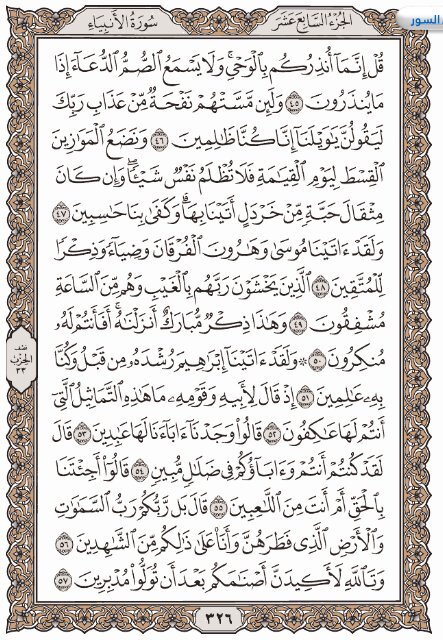 السور
الجزء السابع عشر
سورة الأنبياء
قُلْ إِنَّمَآ أُنذِرُكُم بِٱلْوَحْىِ ۚ وَلَا يَسْمَعُ ٱلصُّمُّ ٱلدُّعَآءَ إِذَا
مَا يُنذَرُونَ ٤٥ وَلَئِن مَّسَّتْهُمْ نَفْحَةٌ مِّنْ عَذَابِ رَبِّكَ
لَيَقُولُنَّ يَٰوَيْلَنَآ إِنَّا كُنَّا ظَٰلِمِينَ ٤٦ وَنَضَعُ ٱلْمَوَٰزِينَ
ٱلْقِسْطَ لِيَوْمِ ٱلْقِيَٰمَةِ فَلَا تُظْلَمُ نَفْسٌ شَيْـًٔا ۖ وَإِن كَانَ
مِثْقَالَ حَبَّةٍ مِّنْ خَرْدَلٍ أَتَيْنَا بِهَا ۗ وَكَفَىٰ بِنَا حَٰسِبِينَ ٤٧
وَلَقَدْ ءَاتَيْنَا مُوسَىٰ وَهَٰرُونَ ٱلْفُرْقَانَ وَضِيَآءً وَذِكْرًا
لِّلْمُتَّقِينَ ٤٨ ٱلَّذِينَ يَخْشَوْنَ رَبَّهُم بِٱلْغَيْبِ وَهُم مِّنَ ٱلسَّاعَةِ
مُشْفِقُونَ ٤٩ وَهَٰذَا ذِكْرٌ مُّبَارَكٌ أَنزَلْنَٰهُ ۚ أَفَأَنتُمْ لَهُۥ
مُنكِرُونَ ٥٠ ۞ وَلَقَدْ ءَاتَيْنَآ إِبْرَٰهِيمَ رُشْدَهُۥ مِن قَبْلُ وَكُنَّا
بِهِۦ عَٰلِمِينَ ٥١ إِذْ قَالَ لِأَبِيهِ وَقَوْمِهِۦ مَا هَٰذِهِ ٱلتَّمَاثِيلُ ٱلَّتِىٓ
أَنتُمْ لَهَا عَٰكِفُونَ ٥٢ قَالُوا۟ وَجَدْنَآ ءَابَآءَنَا لَهَا عَٰبِدِينَ ٥٣ قَالَ
لَقَدْ كُنتُمْ أَنتُمْ وَءَابَآؤُكُمْ فِى ضَلَٰلٍ مُّبِينٍ ٥٤ قَالُوٓا۟ أَجِئْتَنَا
بِٱلْحَقِّ أَمْ أَنتَ مِنَ ٱللَّٰعِبِينَ ٥٥ قَالَ بَل رَّبُّكُمْ رَبُّ ٱلسَّمَٰوَٰتِ
وَٱلْأَرْضِ ٱلَّذِى فَطَرَهُنَّ وَأَنَا۠ عَلَىٰ ذَٰلِكُم مِّنَ ٱلشَّٰهِدِينَ ٥٦
وَتَٱللَّهِ لَأَكِيدَنَّ أَصْنَٰمَكُم بَعْدَ أَن تُوَلُّوا۟ مُدْبِرِينَ ٥٧
نصف
الحزب
٣٣
٣٢٦